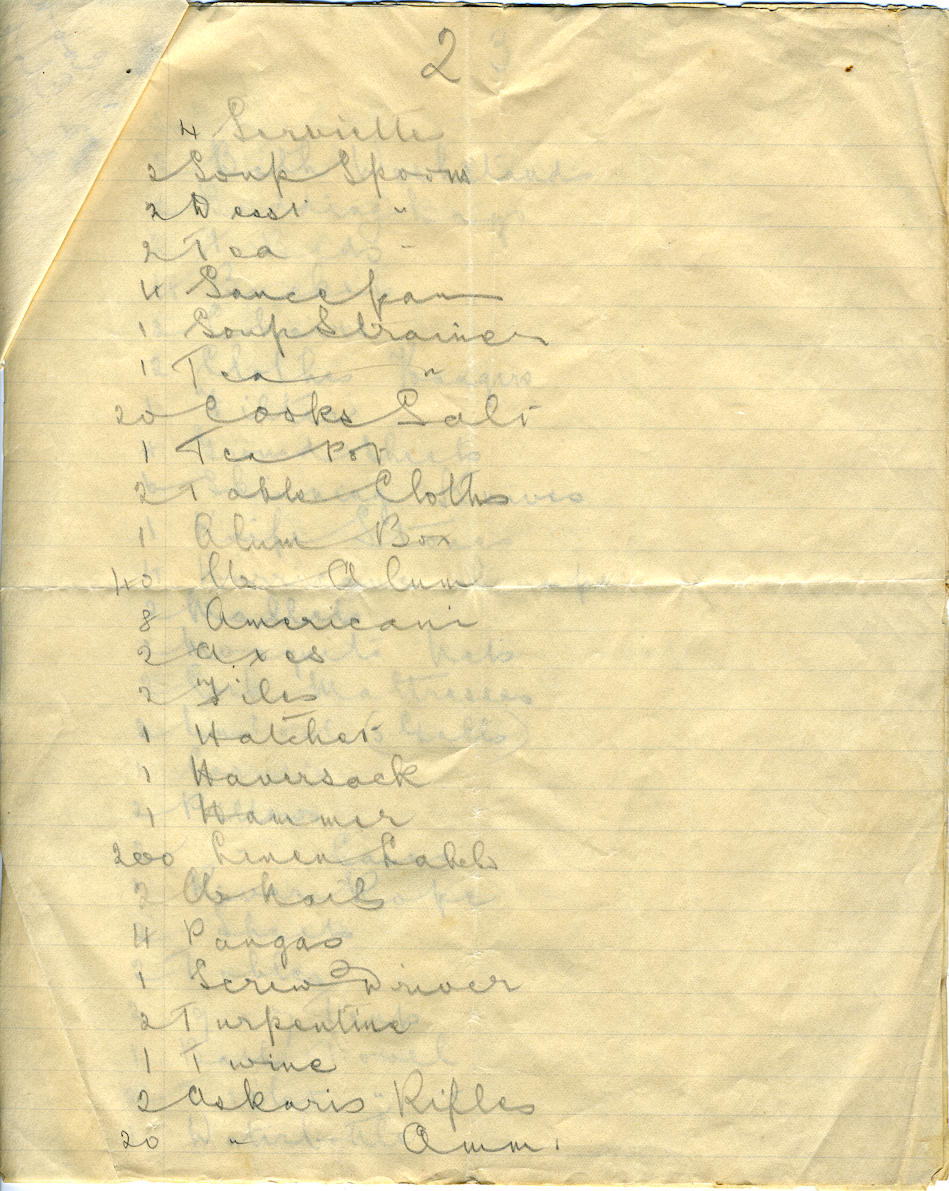 2
4 Serviette
2 Soup Spoons
2 Desst "
2 Tea "
4 Saucepan
1 Soup Strainer
1 Tea "
20 Cooks Salt
1 Tea Pot
2 Table Cloths
1 Alum Box
40 lbs Alum
8 Americani
2 Axes
2 Files
1 Hatchet
1 Haversack
1 Hammer
200 Linen Labels
2 lb Nails
4 Pangas
1 Screw Driver
2 Turpentine
1 Twine
2 Askaris Rifles
20 " Amm.